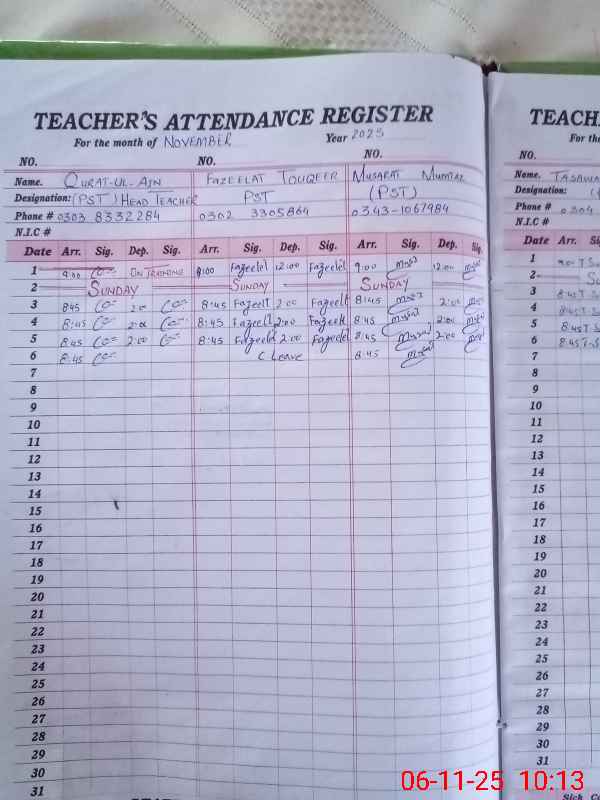 TEACHER'S ATTENDANCE REGISTER
For the month of NOVEMBER Year 2025
NO. NO. NO.
Name. QURAT-UL-AIN FAZEELAT TOUQEER MUSARAT MUMTAZ
Designation: (PST) HEAD TEACHER PST (PST)
Phone # 0303 8332284 0302 3305864 0343-1067984
N.I.C #
Date Arr. Sig. Dep. Sig. Arr. Sig. Dep. Sig. Arr. Sig. Dep. Sig.
1 9:00 ON TRAINING 9:00 Fazeelet 12:00 Fazeelet 9:00 12:00
2 SUNDAY SUNDAY SUNDAY
3 8:45 2:00 8:45 Fazeelt 2:00 Fazeelt 8:45 2:00
4 8:45 2:00 8:45 Fazeelt 2:00 Fazeelt 8:45 2:00
5 8:45 2:00 8:45 Fazeelet 2:00 Fazeelet 8:45 2:00
6 8:45 C Leave 8:45
7
8
9
10
11
12
13
14
15
16
17
18
19
20
21
22
23
24
25
26
27
28
29
30
31
TEACH
For the
NO.
Name. TASAWA
Designation:
Phone # 0304
N.I.C #
Date Arr. Sig
1
2
3 8:45
4 8:45
5 8:45
6 8:45
7
8
9
10
11
12
13
14
15
16
17
18
19
20
21
22
23
24
25
26
27
28
29
30
31
06-11-25 10:13